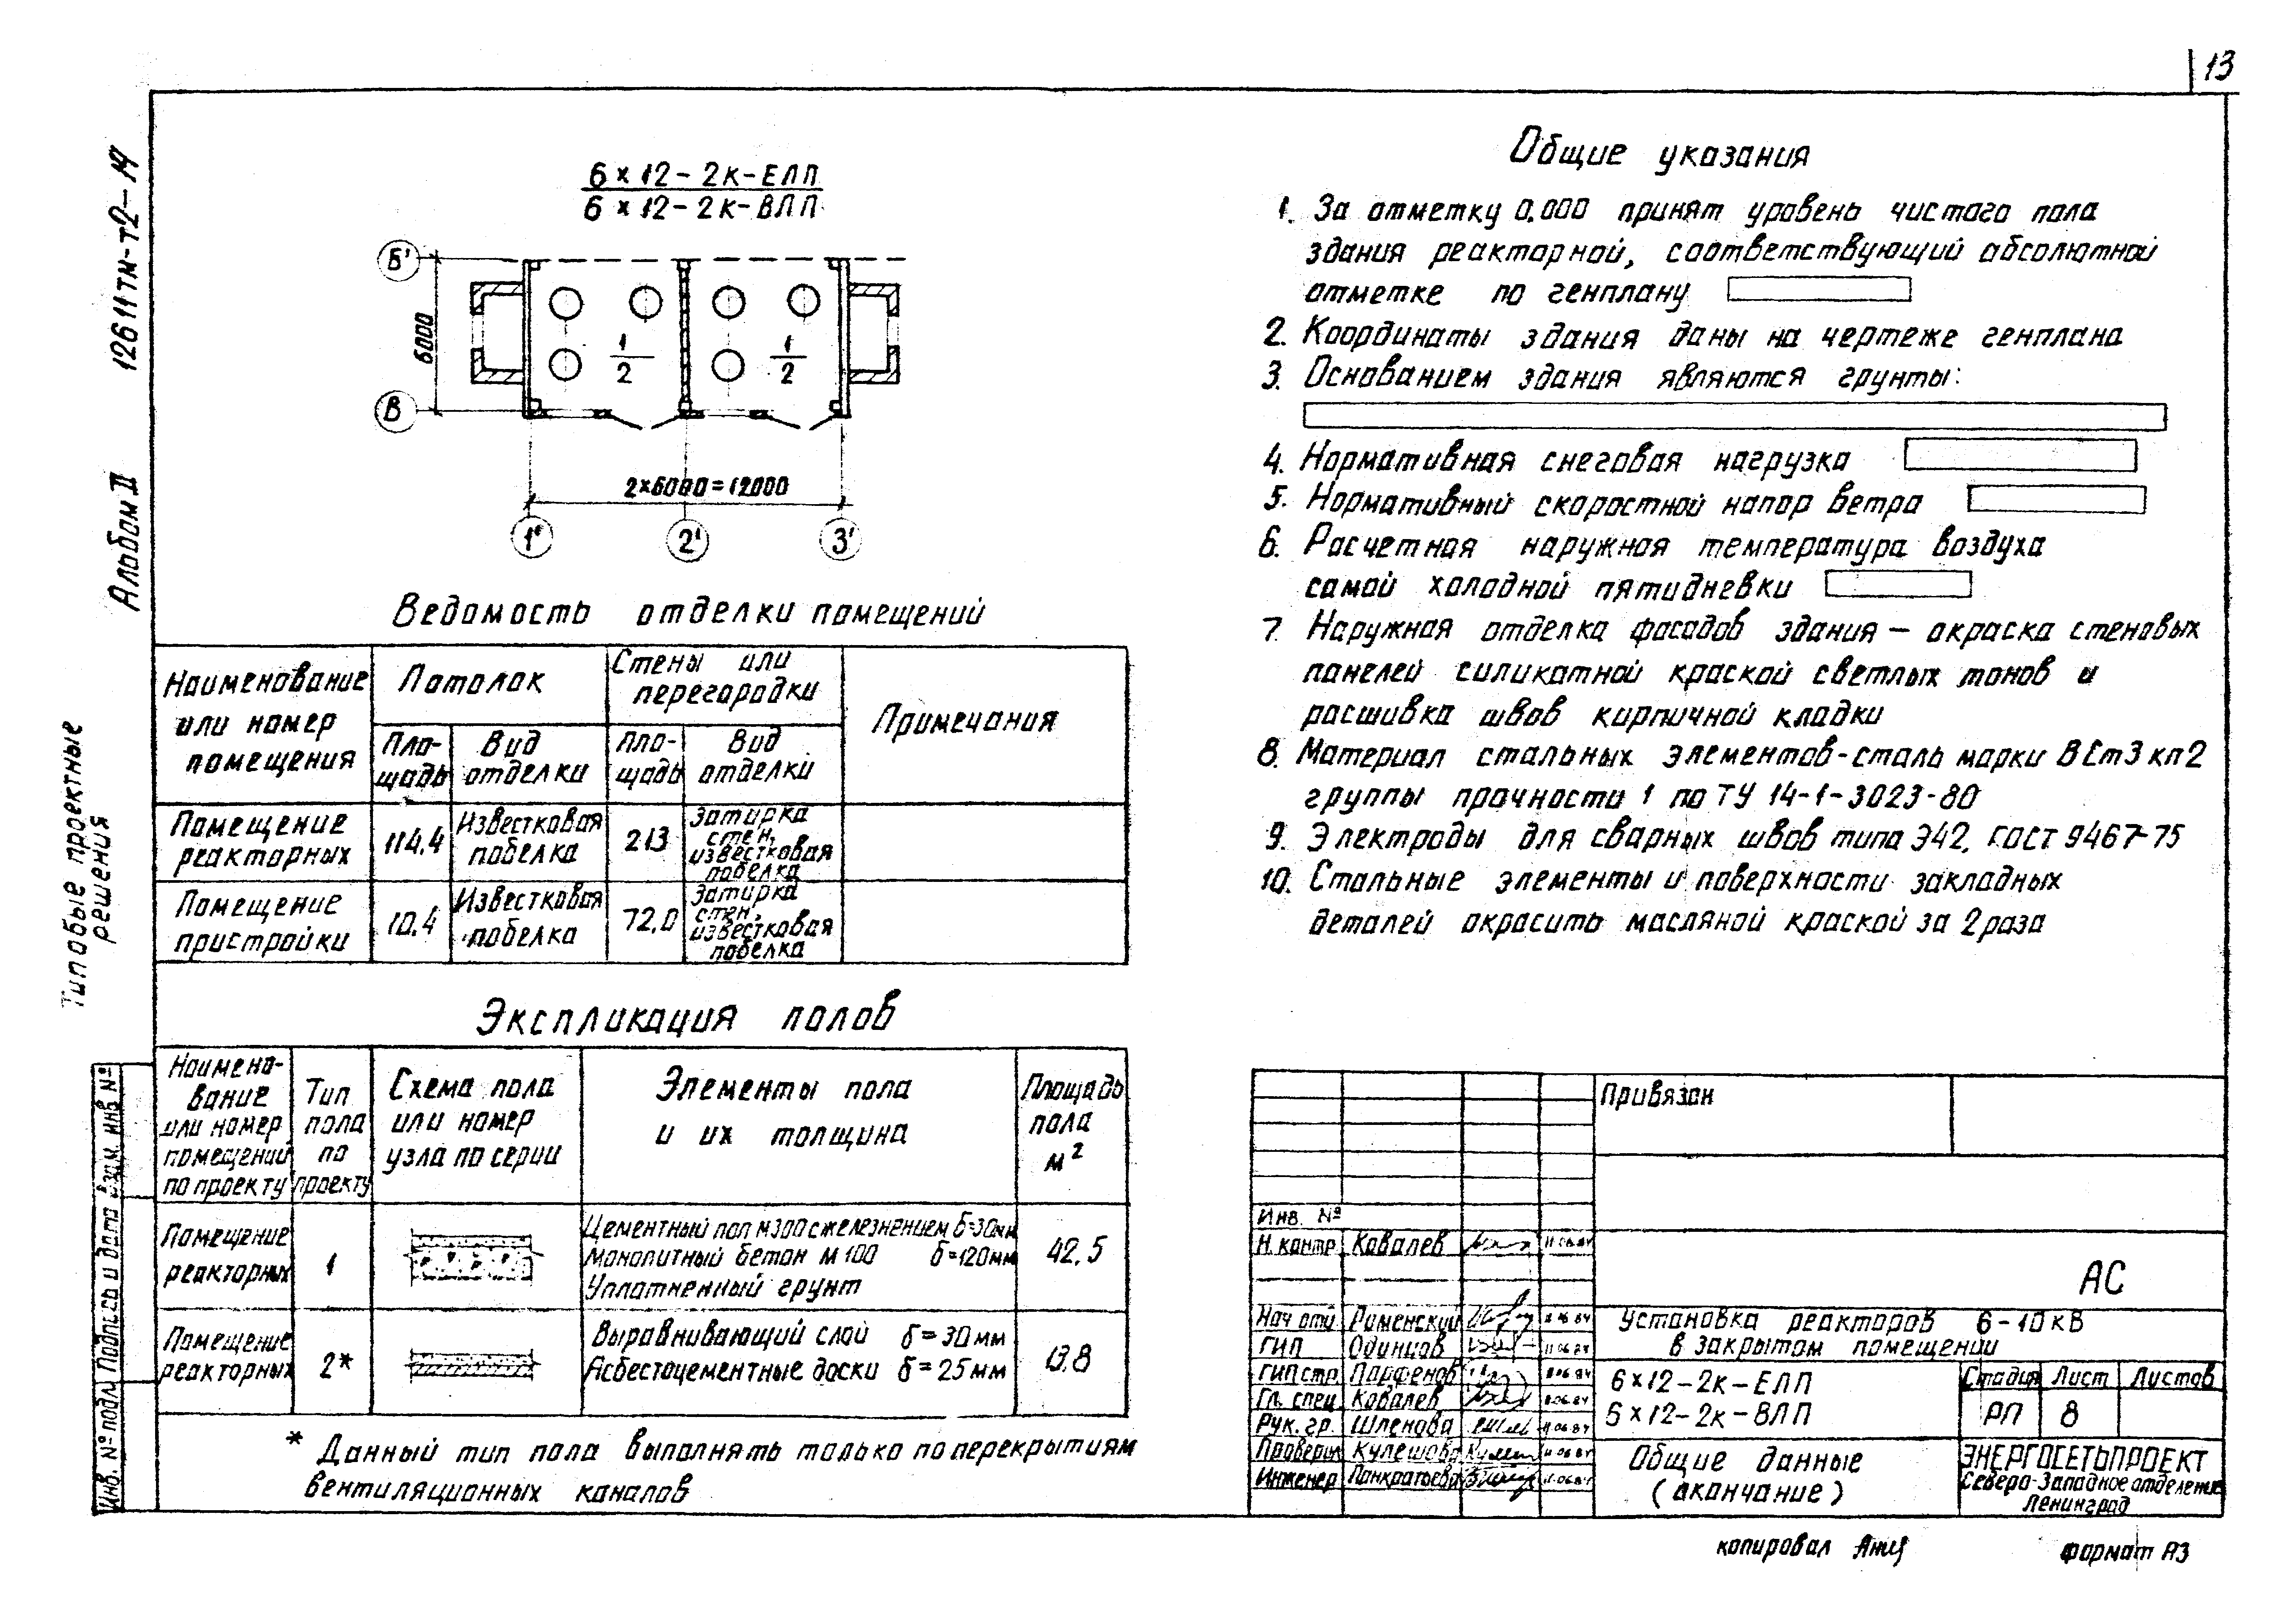 13
12611тм-т2-19
Альбом II
Типовые проектные
решения
6×12-2к-ЕЛП
6×12-2к-ВЛП
Б'
В
6000
1/2
1/2
2×6000=12000
1'
2'
3'
Ведомость отделки помещений
Наименование или номер помещения
Потолок
Стены или перегородки
Примечания
Пло-щадь
Вид отделки
Пло-щадь
Вид отделки
Помещение реакторных
114.4
Известковая побелка
213
Затирка стен, известковая побелка
Помещение пристройки
10.4
Известковая побелка
72.0
Затирка стен, известковая побелка
Экспликация полов
Наимено-вание или номер помещений по проекту
Тип пола по проекту
Схема пола или номер узла по серии
Элементы пола и их толщина
Площадь пола м²
Помещение реакторных
1
Цементный пол М300 с железнением δ=30мм
Монолитный бетон М100 δ=120мм
Уплотненный грунт
42.5
Помещение реакторных
2*
Выравнивающий слой δ=30мм
Асбестоцементные доски δ=25мм
13.8
* Данный тип пола выполнять только по перекрытиям
вентиляционных каналов
Общие указания
1. За отметку 0.000 принят уровень чистого пола
здания реакторной, соответствующий абсолютной
отметке по генплану
2. Координаты здания даны на чертеже генплана
3. Основанием здания являются грунты:
4. Нормативная снеговая нагрузка
5. Нормативный скоростной напор ветра
6. Расчетная наружная температура воздуха
самой холодной пятидневки
7. Наружная отделка фасадов здания – окраска стеновых
панелей силикатной краской светлых тонов и
расшивка швов кирпичной кладки
8. Материал стальных элементов-сталь марки ВСт3кп2
группы прочности 1 по ТУ 14-1-3023-80
9. Электроды для сварных швов типа Э42, ГОСТ 9467-75
10. Стальные элементы и поверхности закладных
деталей окрасить масляной краской за 2 раза
Привязан
Инв. №
Н. контр. Ковалев 11.06.84
АС
Нач. отд. Роменский 11.06.84
ГИП Одинцов 11.06.84
ГИП стр. Парфенов 11.06.84
Гл. спец. Ковалев 11.06.84
Рук. гр. Шленова 11.06.84
Проверил Кулешова 11.06.84
Инженер Панкратьева 11.06.84
Установка реакторов 6-10кВ
в закрытом помещении
6×12-2к-ЕЛП
6×12-2к-ВЛП
Стадия Лист Листов
РП 8
Общие данные
(окончание)
ЭНЕРГОСЕТЬПРОЕКТ
Северо-Западное отделение
Ленинград
Инв. № подл. Подпись и дата Взам. инв №
копировал
формат А3